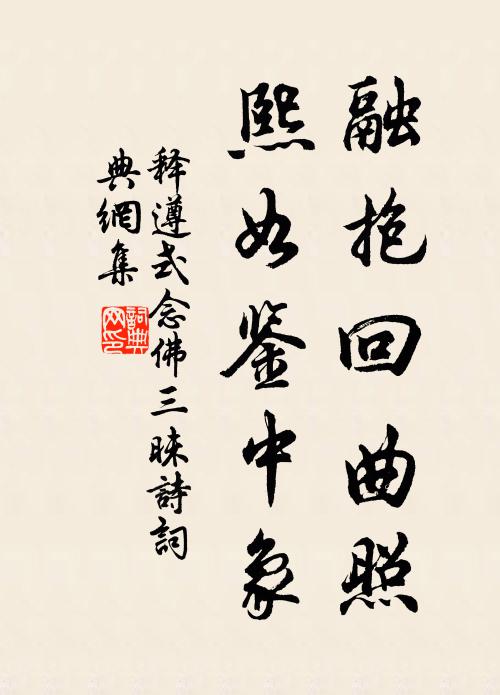 融抱回曲照
熙如鉴中象
释遵式念佛三昧詩詞
典網集
詞典
网印